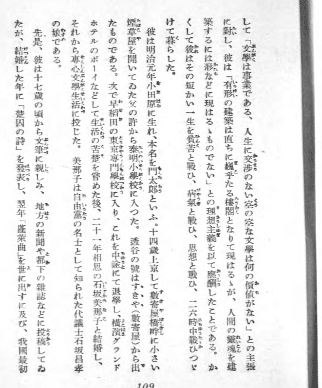 して「文學は事業である、人生に交渉のない空の空な文學は何の價値がない」との主張
に對し、彼は「有形の建築は直ちに巍乎たる樓閣となりて現はるゝが、人間の靈魂を建
築するには形などに現はるゝものでない」との理想主義を以て應酬したことである。か
くして彼はその短かい一生を貧苦と戰ひ、病氣と戰ひ、思想と戰ひ、二六時中戰ひつゞ
けて暮らした。
彼は明治元年小田原に生れ、本名を門太郎といふ。十四歳上京して數寄屋橋畔に小さい
煙草屋を開いてゐた父の許から泰明小學校に入つた。透谷の號はすきや(數寄屋)から出
たものである。次で早稻田の東京專門學校に入り、これを中途にて退學し、橫濱グランド
ホテルのボーイなどして生活の苦楚を嘗めた後、二十一年相思の石坂美那子と結婚し、
それから專心文學生活に投じた。美那子は自由黨の名士として知られた代議士石坂昌孝
の娘である。
先是、彼は十七歳の頃から文筆に親しみ、地方の新聞や都下の雜誌などに投稿してゐ
たが、結婚した年に「楚囚の詩」を發表し、翌年「蓬萊曲」を世に出すに及び、我國最初
109